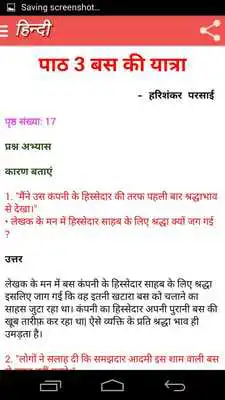 Saving screenshot...
हिन्दी
पाठ 3 बस की यात्रा
- हरिशंकर परसाई
पृष्ठ संख्या: 17
प्रश्न अभ्यास
कारण बताएं
1. "मैंने उस कंपनी के हिस्सेदार की तरफ पहली बार श्रद्धाभाव
से देखा।"
• लेखक के मन में हिस्सेदार साहब के लिए श्रद्धा क्यों जग गई
?
उत्तर
लेखक के मन में बस कंपनी के हिस्सेदार साहब के लिए श्रद्धा
इसलिए जाग गई कि वह इतनी खटारा बस को चलाने का
साहस जुटा रहा था। कंपनी का हिस्सेदार अपनी पुरानी बस की
खूब तारीफ़ कर रहा था| ऐसे व्यक्ति के प्रति श्रद्धा भाव ही
उमड़ता है।
2. "लोगों ने सलाह दी कि समझदार आदमी इस शाम वाली बस